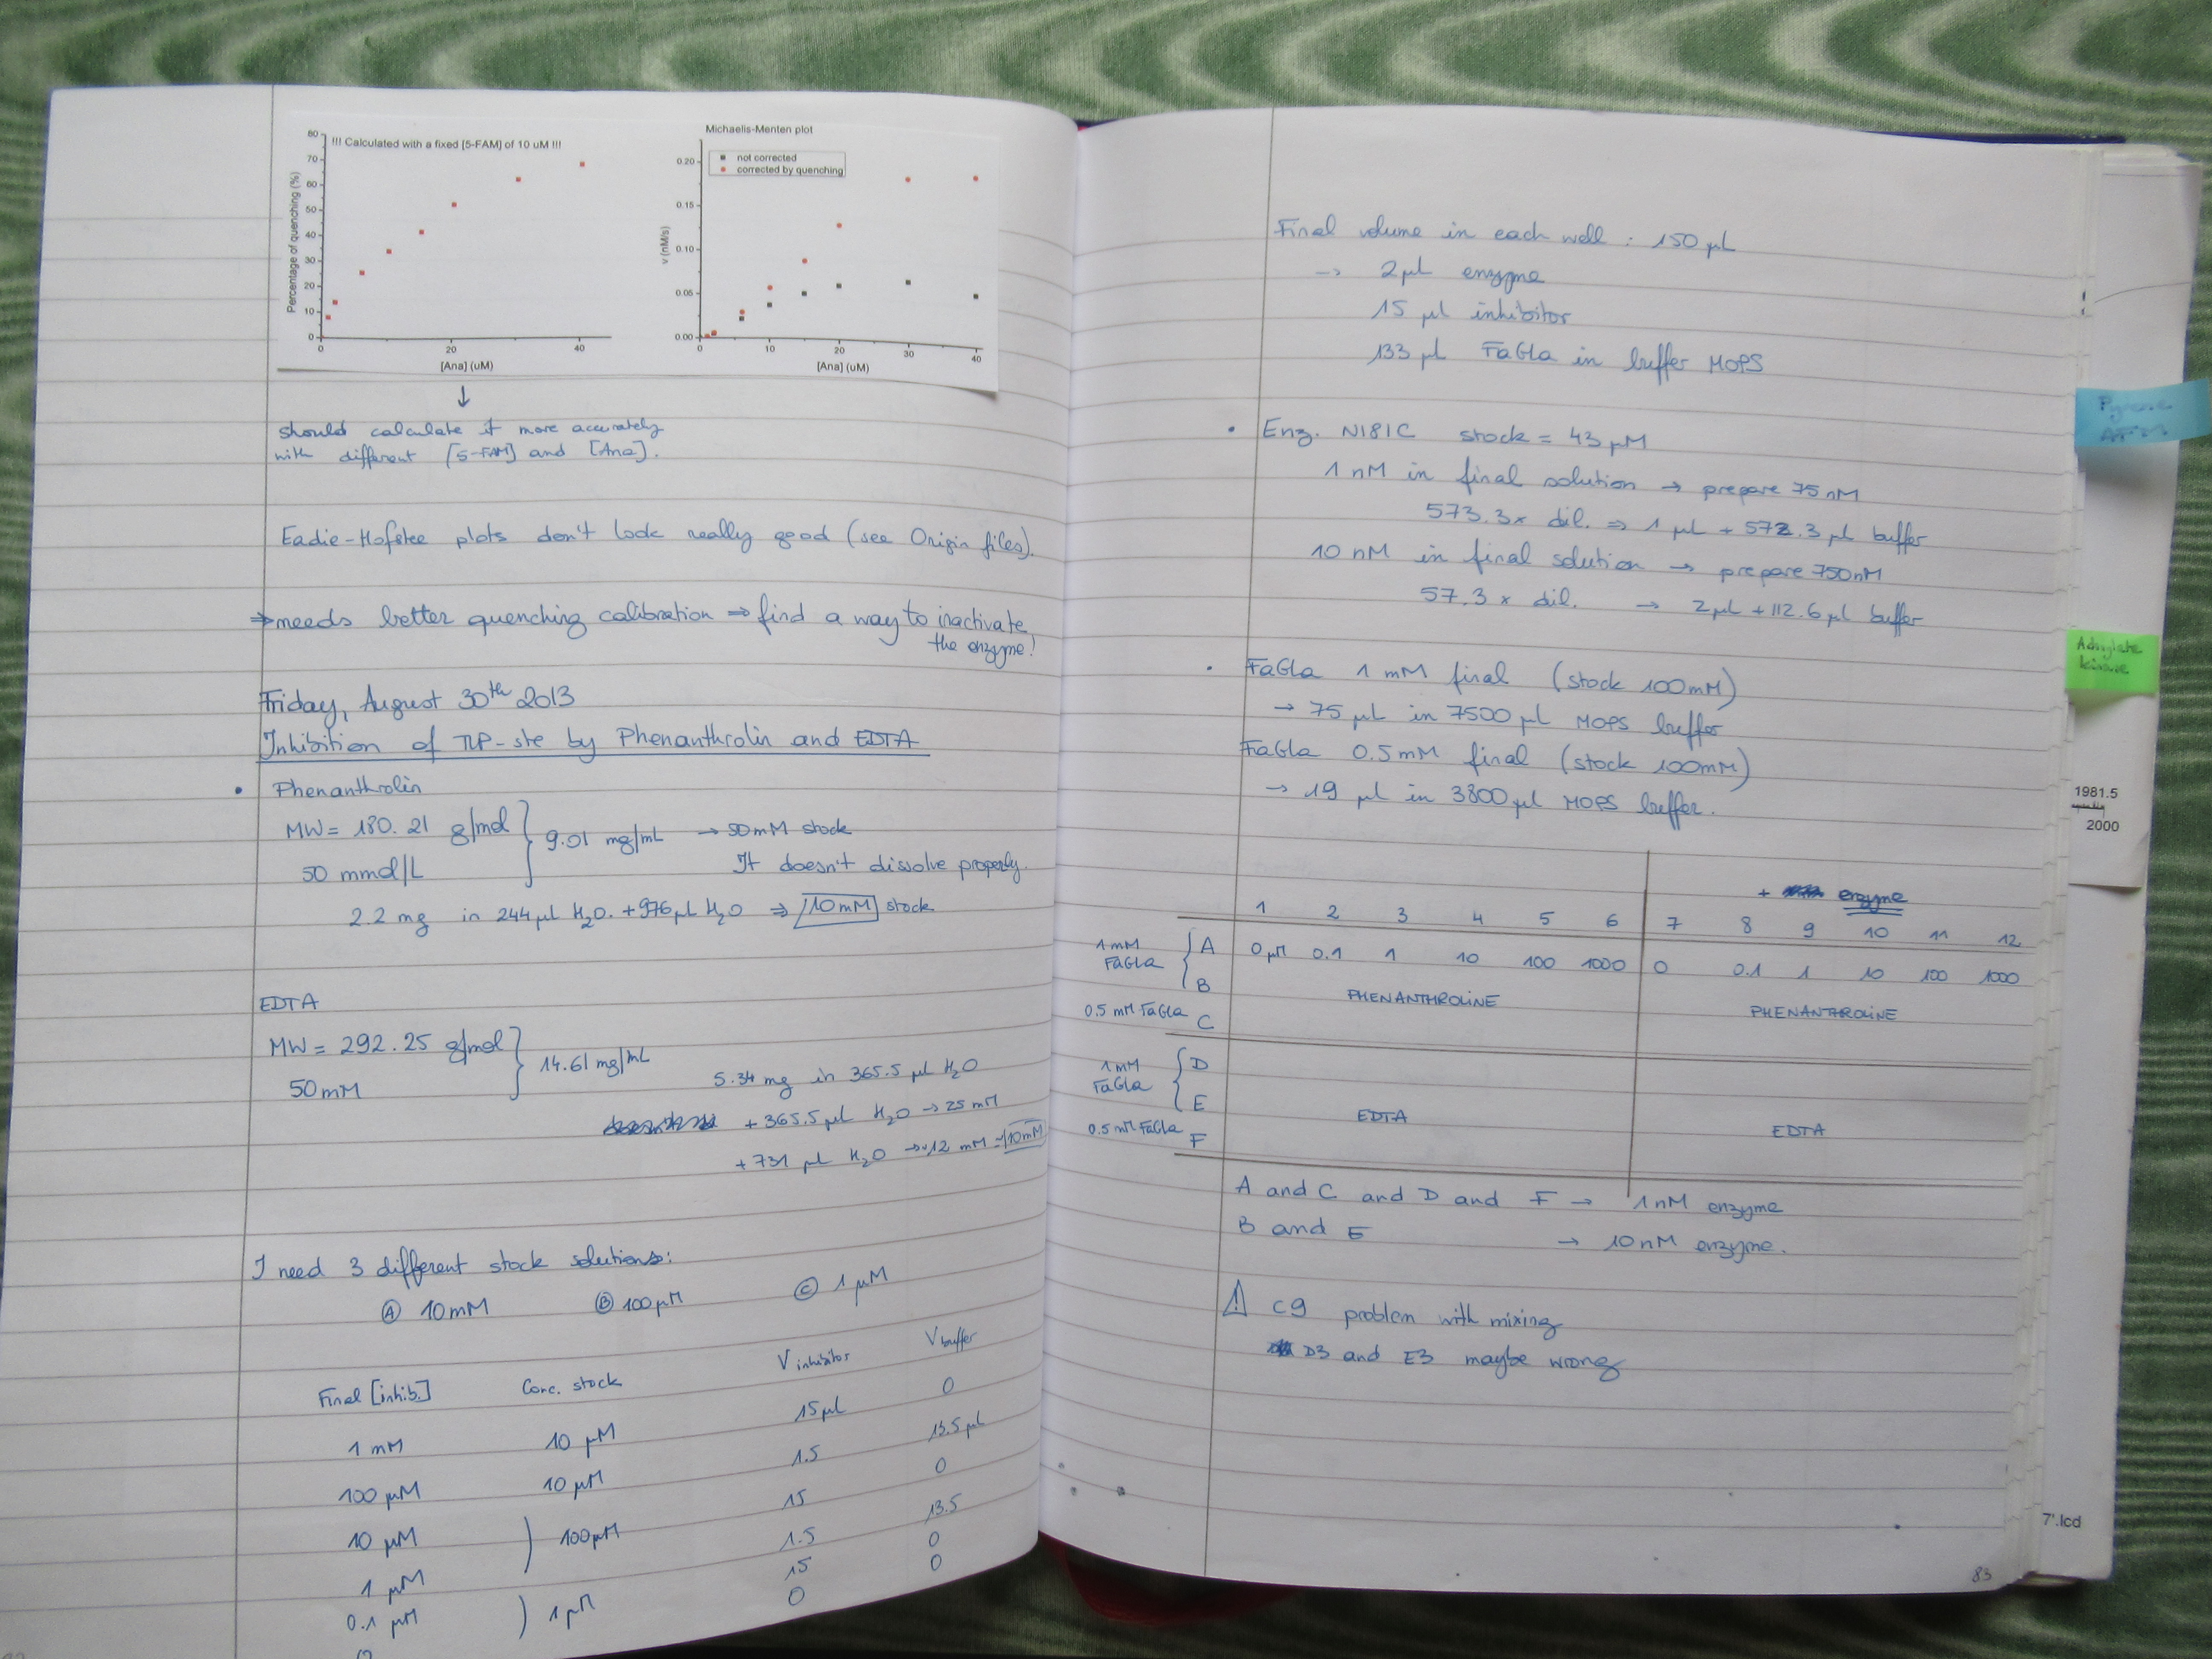 !!! Calculated with a fixed [5-FAM] of 10 uM !!!
Percentage of quenching (%)
80
70
60
50
40
30
20
10
0
0 20 40
[Ana] (uM)
Michaelis-Menten plot
not corrected
corrected by quenching
v (nM/s)
0.20
0.15
0.10
0.05
0.00
0 10 20 30 40
[Ana] (uM)
↓
should calculate it more accurately
with different [5-FAM] and [Ana].
Eadie-Hofstee plots don't look really good (see Origin files).
⇒ needs better quenching calibration ⇒ find a way to inactivate
the enzyme!
Friday, August 30th 2013
Inhibition of TLP-ste by Phenanthrolin and EDTA
• Phenanthrolin
MW = 180.21 g/mol } 9.01 mg/mL → 50mM stock
50 mmol/L It doesn't dissolve properly.
2.2 mg in 244 µL H2O. + 976 µL H2O ⇒ 10mM stock
EDTA
MW = 292.25 g/mol } 14.61 mg/mL
50mM
5.34 mg in 365.5 µL H2O
+ 365.5 µL H2O → 25 mM
+ 731 µL H2O → ~12 mM = 10mM
I need 3 different stock solutions:
Ⓐ 10mM Ⓑ 100µM Ⓒ 1 µM
Final [inhib.] Conc. stock V inhibitor V buffer
1 mM 10 µM 15µL 0
100 µM 10 µM 1.5 13.5 µL
10 µM ) 100µM 15 0
1 µM 1.5 13.5
0.1 µM ) 1µM 15 0
0 0 0
Final volume in each well : 150 µL
→ 2µL enzyme
15 µL inhibitor
133 µL FaGla in buffer MOPS
• Enz. N181C stock = 43 µM
1 nM in final solution → prepare 75 nM
573.3x dil. ⇒ 1 µL + 572.3 µL buffer
10 nM in final solution → prepare 750nM
57.3 x dil. → 2µL + 112.6 µL buffer
• FaGla 1 mM final (stock 100mM)
→ 75 µL in 7500 µL MOPS buffer
FaGla 0.5mM final (stock 100mM)
→ 19 µL in 3800µL MOPS buffer.
+ enzyme
1 2 3 4 5 6 7 8 9 10 11 12
1mM FaGla { A 0 µM 0.1 1 10 100 1000 0 0.1 1 10 100 1000
B PHENANTHROLINE PHENANTHROLINE
0.5 mM FaGla C
1mM FaGla { D
E EDTA EDTA
0.5 mM FaGla F
A and C and D and F → 1 nM enzyme
B and E → 10 nM enzyme.
⚠ C9 problem with mixing
D3 and E3 maybe wrong
83
Adenylate
kinase
1981.5
2000
7'.lcd